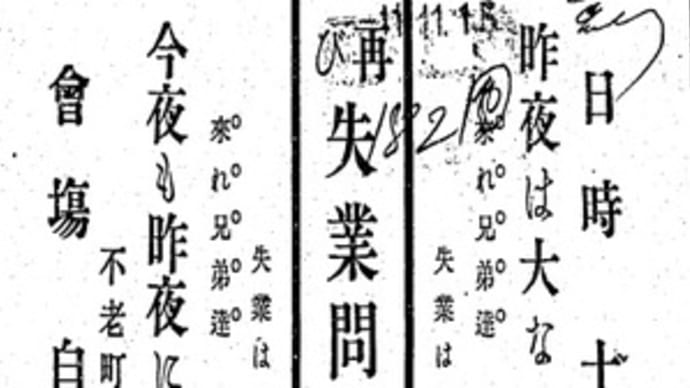 日時十
昨夜は大な
來れ兄弟達
失業は
再び
失業問
11.11.15
1821
失業は
來れ兄弟達
今夜も昨夜に
不老町
會場自